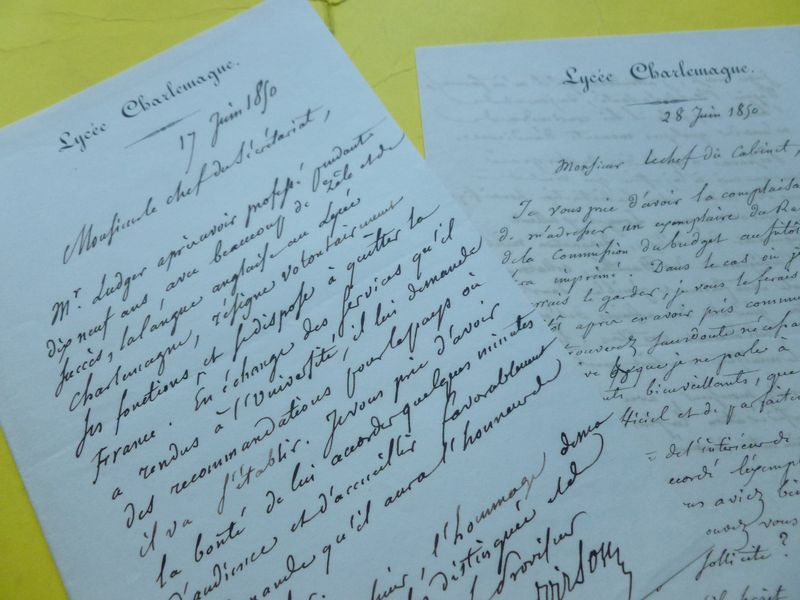 Lycée Charlemagne.
17 Juin 1850
Monsieur le chef du Sécrétariat,
Mr. Ludger après avoir professé pendant
dix neuf ans, avec beaucoup de zèle et de
succès, la langue anglaise au Lycée
Charlemagne, résigne volontairement
ses fonctions et se dispose à quitter la
France. En échange des services qu'il
a rendus à l'Université, il lui demande
des recommandations pour le pays où
il va s'établir. Je vous prie d'avoir
la bonté de lui accorder quelques minutes
d'audience et d'accueillir favorablement
demande qu'il aura l'honneur de
l'hommage de ma
distinguée et de
Proviseur
Lycée Charlemagne.
28 Juin 1850
Monsieur le chef du Cabinet,
Je vous prie d'avoir la complaisa
de m'adresser un exemplaire du Ra
de la Commission du budget aussitôt
sera imprimé. Dans le cas où j
rais le garder, je vous le ferais
après en avoir pris commu
trouverez sans doute nécessa
que je ne parle à
bienveillants, que
ficiel et de parfaite
de l'intérieur de
cordé l'exempl
us aviez bi
ouvez vous
sollicite?